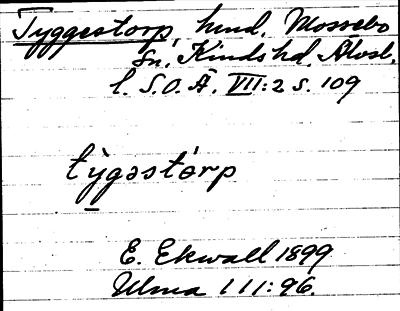 Tyggestorp, hmd. Mossebo
sn. Kinds hd. Älvsb.
l. S.O.Ä. VII:2 s. 109
tỳgəstórp
E. Ekwall 1899
Ulma 111:96.